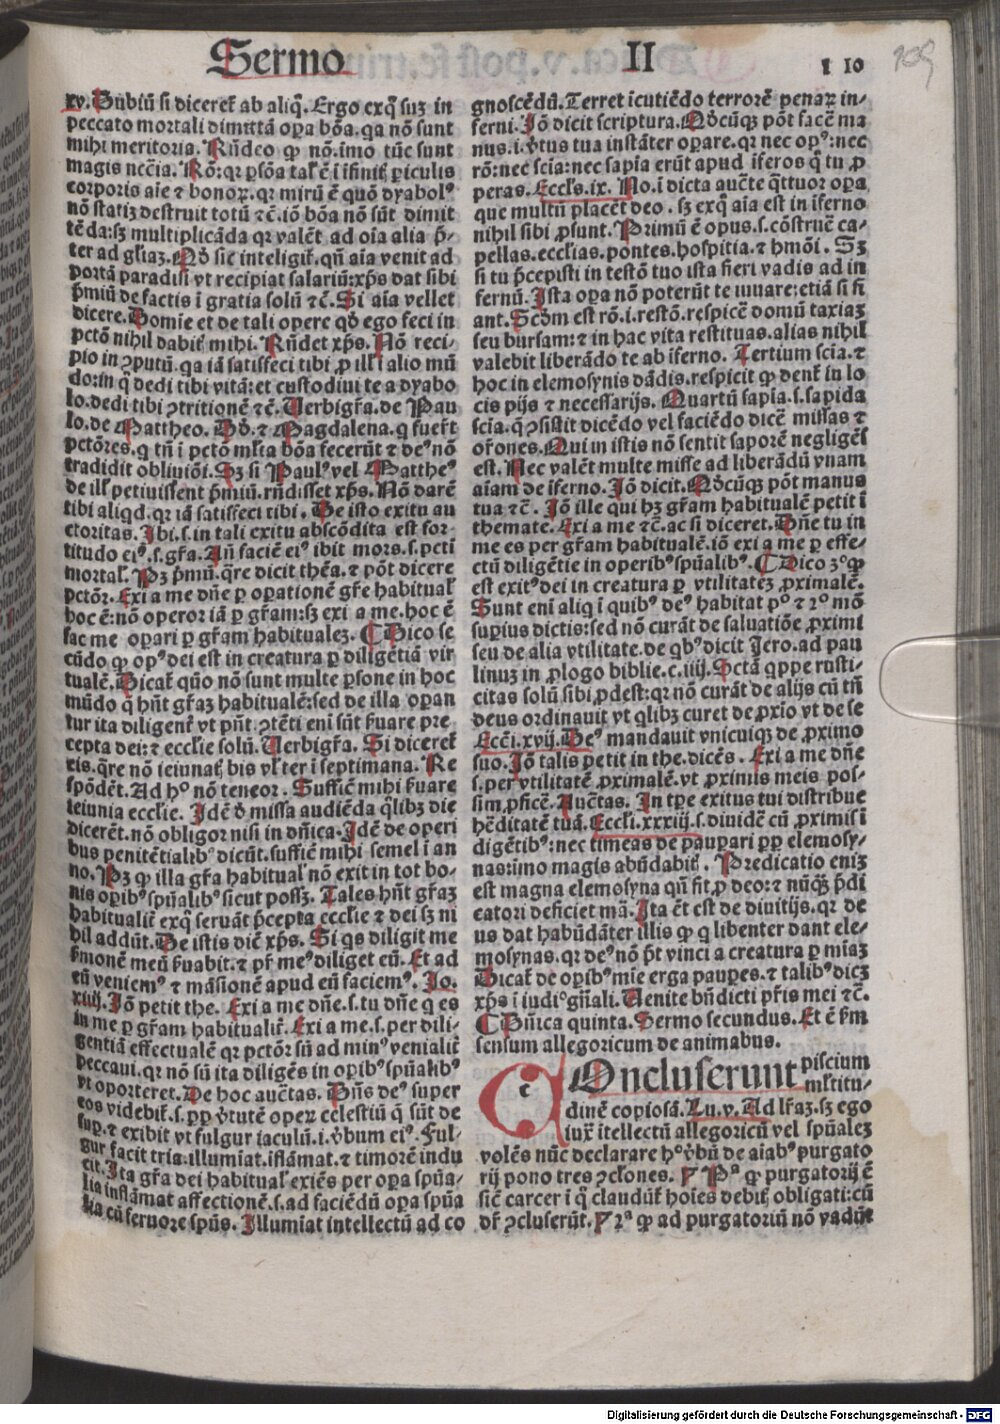 Sermo II 110
109
xv. Dubiū si diceret̄ ab aliq̄. Ergo exq̄ suz in
peccato mortali dimittā oꝑa bōa. qa nō sunt
mihi meritoria. Rn̄deo ꝙ nō. imo tūc sunt
magis nec̄ia. Rō: qꝛ ꝑsōa tal̓ ē ī ifinit̓ ꝑiculis
corporis aīe ⁊ bonoꝝ. qꝛ mirū ē quō dyabolꝰ
nō statiz destruit totū ⁊c̄. iō bōa nō sūt dimit
tēda: sz multiplicāda qꝛ valēt ad oīa alia p̄-
ter ad gl̓iaz. Qd̓ sic inteligit̓. qn̄ aīa venit ad
portā paradisi vt recipiat salariū: xp̄s dat sibi
p̄miū de factis ī gratia solū ⁊c̄. Si aīa vellet
dicere. Domie et de tali opere qd̓ ego feci in
pctō nihil dabit̓ mihi. Rn̄det xp̄s. Nō reci-
pio in ꝯputū. qa iā satisfeci tibi ꝓ ill̓ ī alio mū
do: in q̄ dedi tibi vitā: et custodiui te a dyabo
lo. dedi tibi ꝯtritionē ⁊c̄. Uerbigr̄a. de Pau
lo. de Mattheo. Dd̓. ⁊ Magdalena. q̄ fuer̄t
pctōres. q̄ tn̄ ī pctō ml̓ta bōa fecerūt ⁊ deꝰ nō
tradidit obliuiōi. Sz si Paulꝰ vel Mattheꝰ
de ill̓ petiuissent p̄miū. rn̄disset xp̄s. Nō darē
tibi aliqd. qꝛ iā satisfeci tibi. De isto exitu au
ctoritas. Ibi. s. in tali exitu abscōdita est for-
titudo eiꝰ. s. gr̄a. An̄ faciē eiꝰ ibit mors. s. pcti
mortal̓. Pz p̄mū. q̄re dicit thēa. ⁊ pōt dicere
pctōr. Exi a me dn̄e ꝑ oꝑationē gr̄e habitual̓
hoc ē: nō operor iā ꝑ gr̄am: sz exi a me. hoc ē
fac me oꝑari ꝑ gr̄am habitualez. ¶ Dico se
cūdo ꝙ opꝰ dei est in creatura ꝑ diligētiā vir
tualē. Dicat̓ quō nō sunt multe ꝑsone in hoc
mūdo q̄ hn̄t gr̄az habitualē: sed de illa oꝑan
tur ita diligent̓ vt pn̄t. ꝯtēti eni sūt ẜuare pre
cepta dei: ⁊ ecclie solū. Uerbigr̄a. Si diceret̓
eis. q̄re nō ieiunat̓ bis vl̓ ter ī septimana. Re
spōdēt. Ad hͦ nō teneor. Sufficit mihi ẜuare
ieiunia ecclie. Idē d̓ missa audiēda q̄libz die
dicerēt. nō obligor nisi in dn̄ica. Idē de operi
bus penitētialibꝰ dicūt. sufficit mihi semel ī an
no. Pz ꝙ illa gr̄a habitual̓ nō exit in tot bo-
nis oꝑibꝰ spūalibꝰ sicut possz. Tales hn̄t gr̄az
habitualē exq̄ seruāt p̄cepta ecclie ⁊ dei sz ni
hil addūt. De istis dic̄ xp̄s. Si qs diligit me
ẜmonē meū ẜuabit. ⁊ pr̄ meꝰ diliget eū. Et ad
eū veniemꝰ ⁊ māsionē apud eū faciemꝰ. Jo.
xiiij. Iō petit the. Exi a me dn̄e. s. tu dn̄e q̄ es
in me ꝑ gr̄am habitualē. Exi a me. s. per dili-
gentiā effectualē qꝛ pctōr sū ad minꝰ venialit̓
peccaui. qꝛ nō sū ita diligēs in oꝑibꝰ spūalibꝰ
vt oporteret. De hoc auctas. Dn̄s deꝰ super
eos videbit̓. s. ꝓꝑ v̓tutē operz celestiū q̄ sūt de
sup. ⁊ exibit vt fulgur iaculū. i. v̓bum eiꝰ. Ful-
gur facit tria. illumīat. iflāmat. ⁊ timorē indu
cit. Ita gr̄a dei habitual̓ exiēs per oꝑa spūa-
lia inflāmat affectionē. s. ad faciēdū oꝑa spūa
lia cū feruore spūs. Illumīat intellectū ad co
gnoscēdū. Terret icutiēdo terrorē penaꝝ in-
ferni. Iō dicit scriptura. Qd̓cūqz pōt facē ma
nus. i. v̓tus tua instāter oꝑare. qꝛ nec opꝰ: nec
rō: nec scīa: nec sapīa erūt apud iferos q̄ tu ꝓ
peras. Eccl̓s. ix. No. ī dicta auctē q̄ttuor oꝑa
que multū placent deo. sz exq̄ aīa est in iferno
nihil sibi ꝓsunt. Primū ē opus. s. cōstruē ca-
pellas. ecclias. pontes. hospitia. ⁊ hm̄oi. Sz
si tu p̄cepisti in testō tuo ista fieri vadis ad in
fernū. Ista oꝑa nō poterūt te iuuare: etiā si fi
ant. Scd̓m est rō. i. restō. respicē domū taxiaz
seu bursam: ⁊ in hac vita restituas. alias nihil
valebit liberādo te ab iferno. Tertium scīa. ⁊
hoc in elemosynis dādis. respicit ꝙ dent̓ in lo
cis pijs ⁊ necessarijs. Quartū sapīa. s. sapida
scīa. q̄ ꝯsistit dicēdo vel faciēdo dicē missas ⁊
or̄ones. Qui in istis nō sentit saporē negligēs
est. Nec valēt multe misse ad liberādū vnam
aīam de iferno. Iō dicit. Qd̓cūqz pōt manus
tua ⁊c̄. Iō ille qui hz gr̄am habitualē petit ī
themate. Exi a me ⁊c̄. ac si diceret. Dn̄e tu in
me es per gr̄am habitualē. iō exi a me ꝑ effe-
ctū diligētie in operibꝰ spūalibꝰ. ¶ Dico 3ͦ ꝙ
est exitꝰ dei in creatura ꝑ vtilitatez ꝓximalē.
Sunt eni aliq̄ ī quibꝰ deꝰ habitat pͦ ⁊ 2ͦ mō
supius dictis: sed nō curāt de saluatiōe ꝓximi
seu de alia vtilitate. de qbꝰ dicit Jero. ad pau
linuz in ꝓlogo biblie. c. iiij. Sctā qppe rusti-
citas solū sibi ꝓdest: qꝛ nō curāt de alijs cū tn̄
deus ordinauit vt qlibz curet de ꝓxīo vt de se
Ecc̄i. xvij. Deꝰ mandauit vnicuiqz de proximo
suo. Iō talis petit in the. dicēs. Exi a me dn̄e
s. per vtilitatē ꝓximalē. vt ꝓximis meis pos-
sim ꝓficē. Auctas. In tꝑe exitus tui distribue
hēditatē tuā. Eccl̓i. xxxiij. s. diuidē cū ꝓximis ī
digētibꝰ: nec timeas de pauꝑari ꝓꝑ elemosy-
nas: imo magis abūdabit̓. Predicatio enīz
est magna elemosyna qn̄ fit ꝓ deo: ⁊ nūqz p̄di
catori deficiet mā. Ita ēt est de diuitijs. qꝛ de
us dat habūdāter illis ꝙ q libenter dant ele-
mosynas. qꝛ deꝰ nō pt̄ vinci a creatura ꝑ mīaz
Dicat̓ de oꝑibꝰ mīe erga pauꝑes. ⁊ talibꝰ dicz
xp̄s ī iudiͦ gn̄ali. Uenite bn̄dicti pr̄is mei ⁊c̄.
¶ Dn̄ica quinta. Sermo secundus. Et ē ẜm
sensum allegoricum de animabus.
COncluserunt piscium
mltitu-
dinē copiosā. Lu. v. Ad lr̄az. sz ego
iux̄ itellectū allegoricū vel spūalez
volēs nūc declarare hͦ v̓bū de aīabꝰ purgato
rij pono tres ꝯclones. ¶ Pͣ ꝙ purgatorij ē
sic̄ carcer ī q̄ claudūt̓ hoīes debit̓ obligati: cū
dr̄ ꝯcluserūt. ¶ 2ͣ ꝙ ad purgatoriū nō vadūt
Digitalisierung gefördert durch die Deutsche Forschungsgemeinschaft - DFG